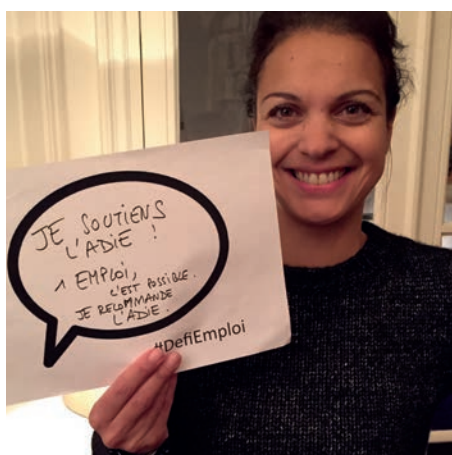 JE SOUTIENS
L'ADIE !
1 EMPLOI,
C'EST POSSIBLE.
JE RECOMMANDE
L'ADIE.
#DefiEmploi